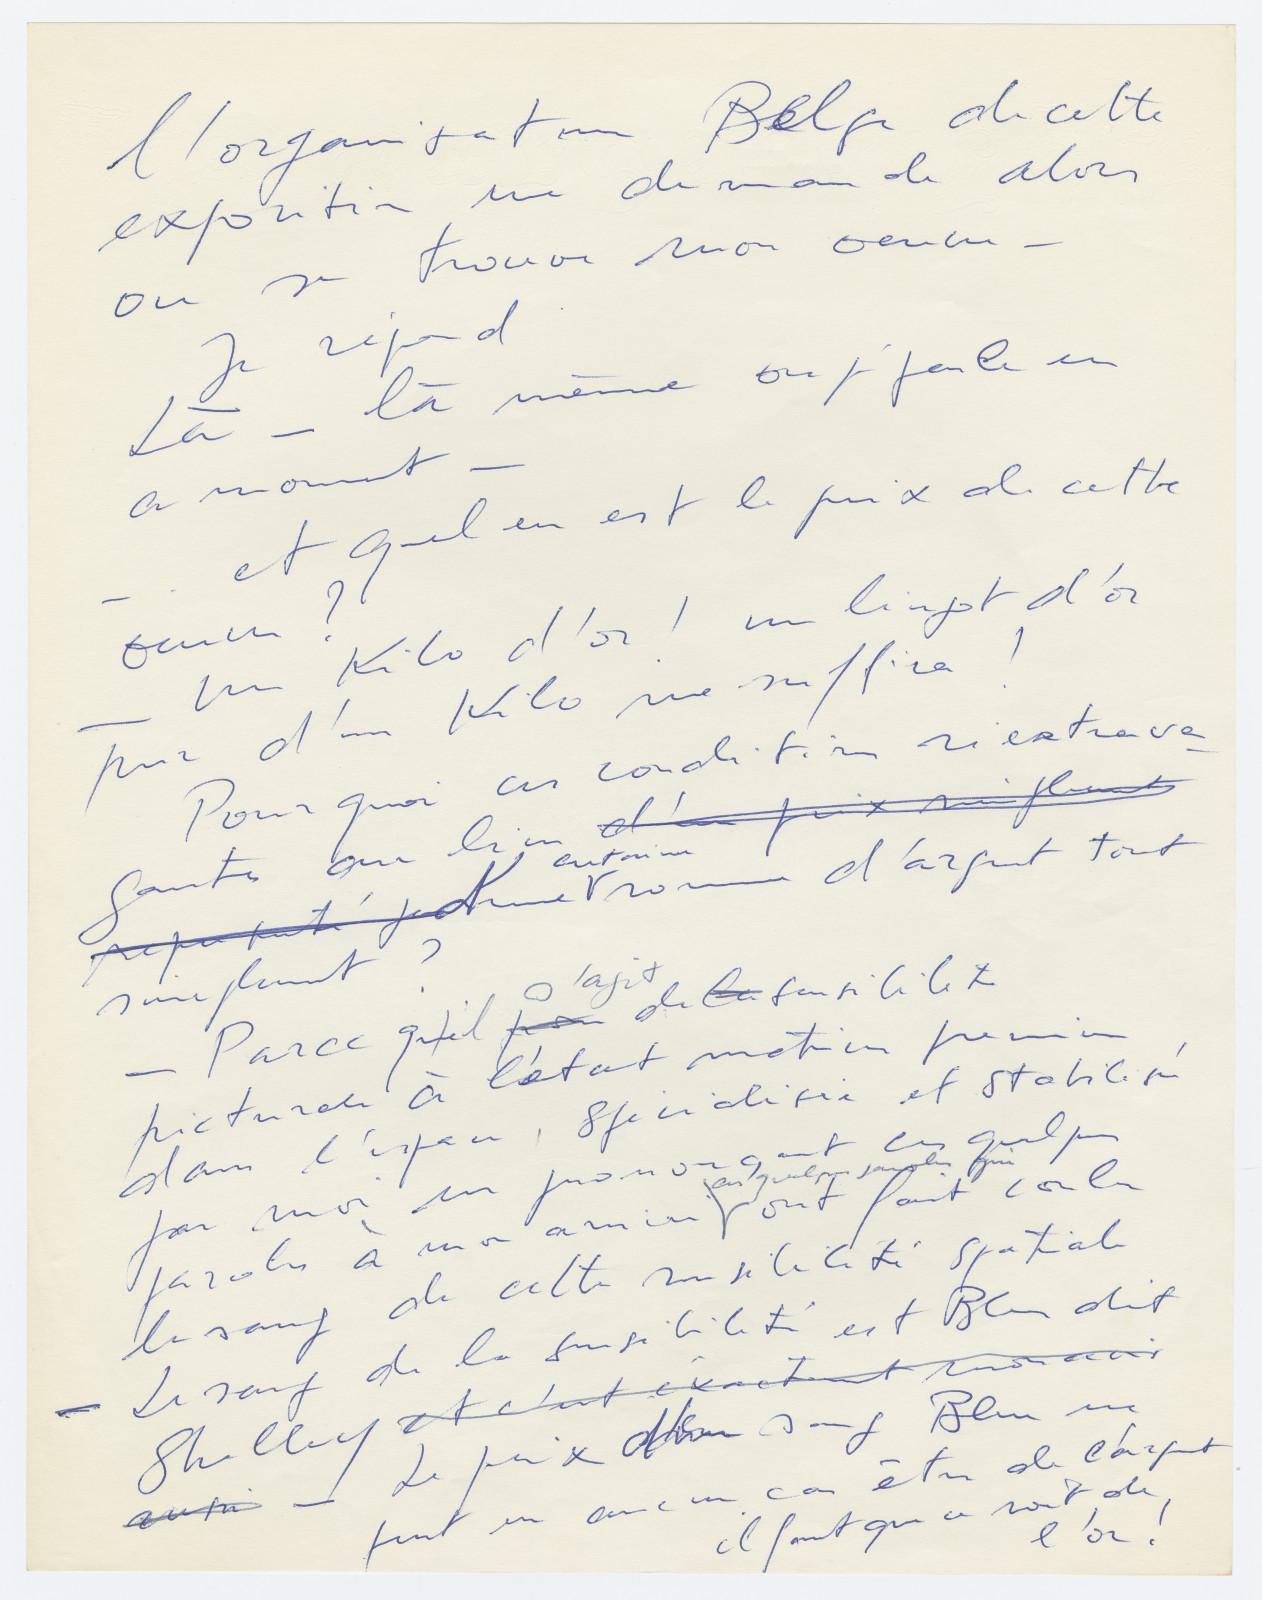 l'organisation Belge de cette
exposition me demande alors
ou se trouve mon oeuvre –
Je répond
Là – là même ou je parle en
ce moment –
– et quel en est le prix de cette
oeuvre ?
– un Kilo d'or ! un lingot d'or
pur d'un Kilo me suffira !
Pourquoi ces conditions si extrava-
gantes au lieu d'un prix simplement
représenté par d'une certaine somme d'argent tout
simplement ?
– Parce qu'il pour s'agit de la sensibilité
picturale à l'état matière première
dans l'espace, spécialisée et stabilisée
par moi en prononçant ces quelques
paroles à mon arrivée ces quelques paroles qui ont fait couler
le sang de cette sensibilité spatiale
– Le sang de la sensibilité est Bleu dit
Shelley et c'est exactement mon avis
aussi – Le prix du sang Bleu ne
peut en aucun cas être de l'argent
il faut que ce soit de
l'or !